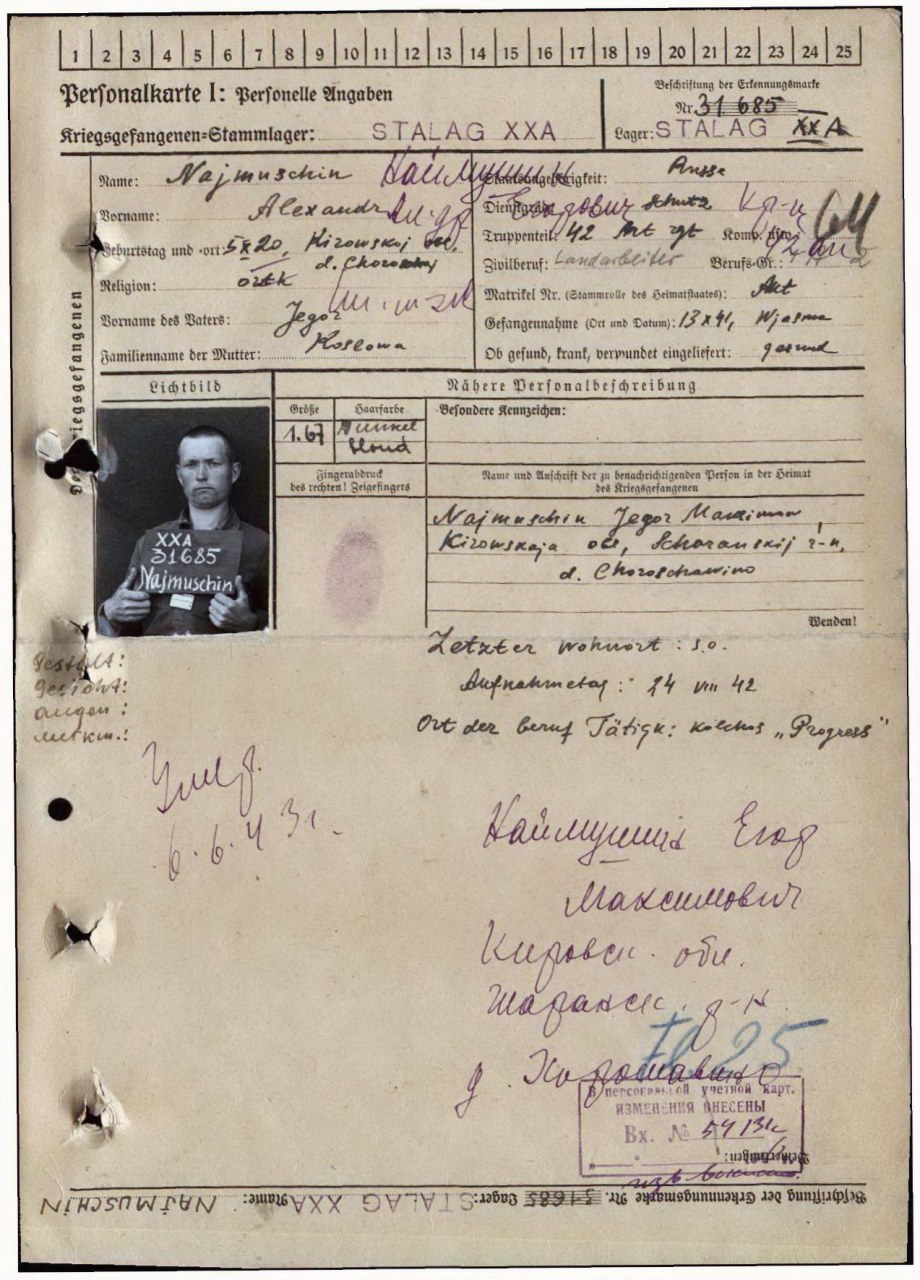 1 2 3 4 5 6 7 8 9 10 11 12 13 14 15 16 17 18 19 20 21 22 23 24 25
Personalkarte I: Personelle Angaben
Beschriftung der Erkennungsmarke
Nr. 31 685
Kriegsgefangenen=Stammlager: STALAG XXA
Lager: STALAG XXA
Name: Najmuschin Наймушин
Staatsangehörigkeit: Russe
Vorname: Alexandr
Dienstgrad: Schütz
Егорович
Кр-ц
Truppenteil: 42 Art rgt Komp. usw.:
Geburtstag und -ort: 5 X 20, Kirowskaj obl.
d. Choroschaj
Zivilberuf: Landarbeiter Berufs-Gr.:
Religion: ortk
Matrikel Nr. (Stammrolle des Heimatstaates): Akt
Vorname des Vaters: Jegor
Gefangennahme (Ort und Datum): 13 X 41, Wjasma
Familienname der Mutter: Koslowa
Ob gesund, krank, verwundet eingeliefert: gesund
Des Kriegsgefangenen
Lichtbild
Nähere Personalbeschreibung
Größe
Haarfarbe
Besondere Kennzeichen:
1.67
Dunkel
blond
Fingerabdruck
des rechten! Zeigefingers
Name und Anschrift der zu benachrichtigenden Person in der Heimat
des Kriegsgefangenen
XXA
31685
Najmuschin
Najmuschin Jegor Maximow
Kirowskaja obl, Scharanskij r-n,
d. Choroschawino
Wenden!
Letzter Wohnort: s.o.
Gestalt:
Gesicht:
Augen:
Merkm.:
Aufnahmetag: 24 VIII 42
Ort der beruf Tätigk: Kolchos „Progress"
6.6.43г.
Наймушин Егор
Максимович
Кировск. обл.
Шаранск. р-н
д. Хорошавино
Fl. 25
В персональной учетной карт.
ИЗМЕНЕНИЯ ВНЕСЕНЫ
Вх. №
Bemerkungen:
Beschriftung der Erkennungsmarke Nr. 31685 Lager: STALAG XXA Name: NAJMUSCHIN